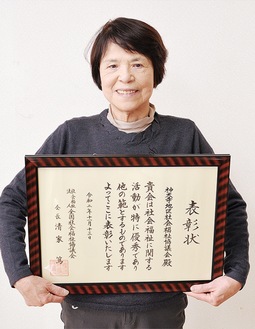 表彰状
神大寺地区社会福祉協議会殿
貴会は社会福祉に関する
活動が特に優秀であり
他の範とするものであります
よってここに表彰いたします
令和二年十一月十三日
社会福祉法人 全国社会福祉協議会
会長 清家 篤